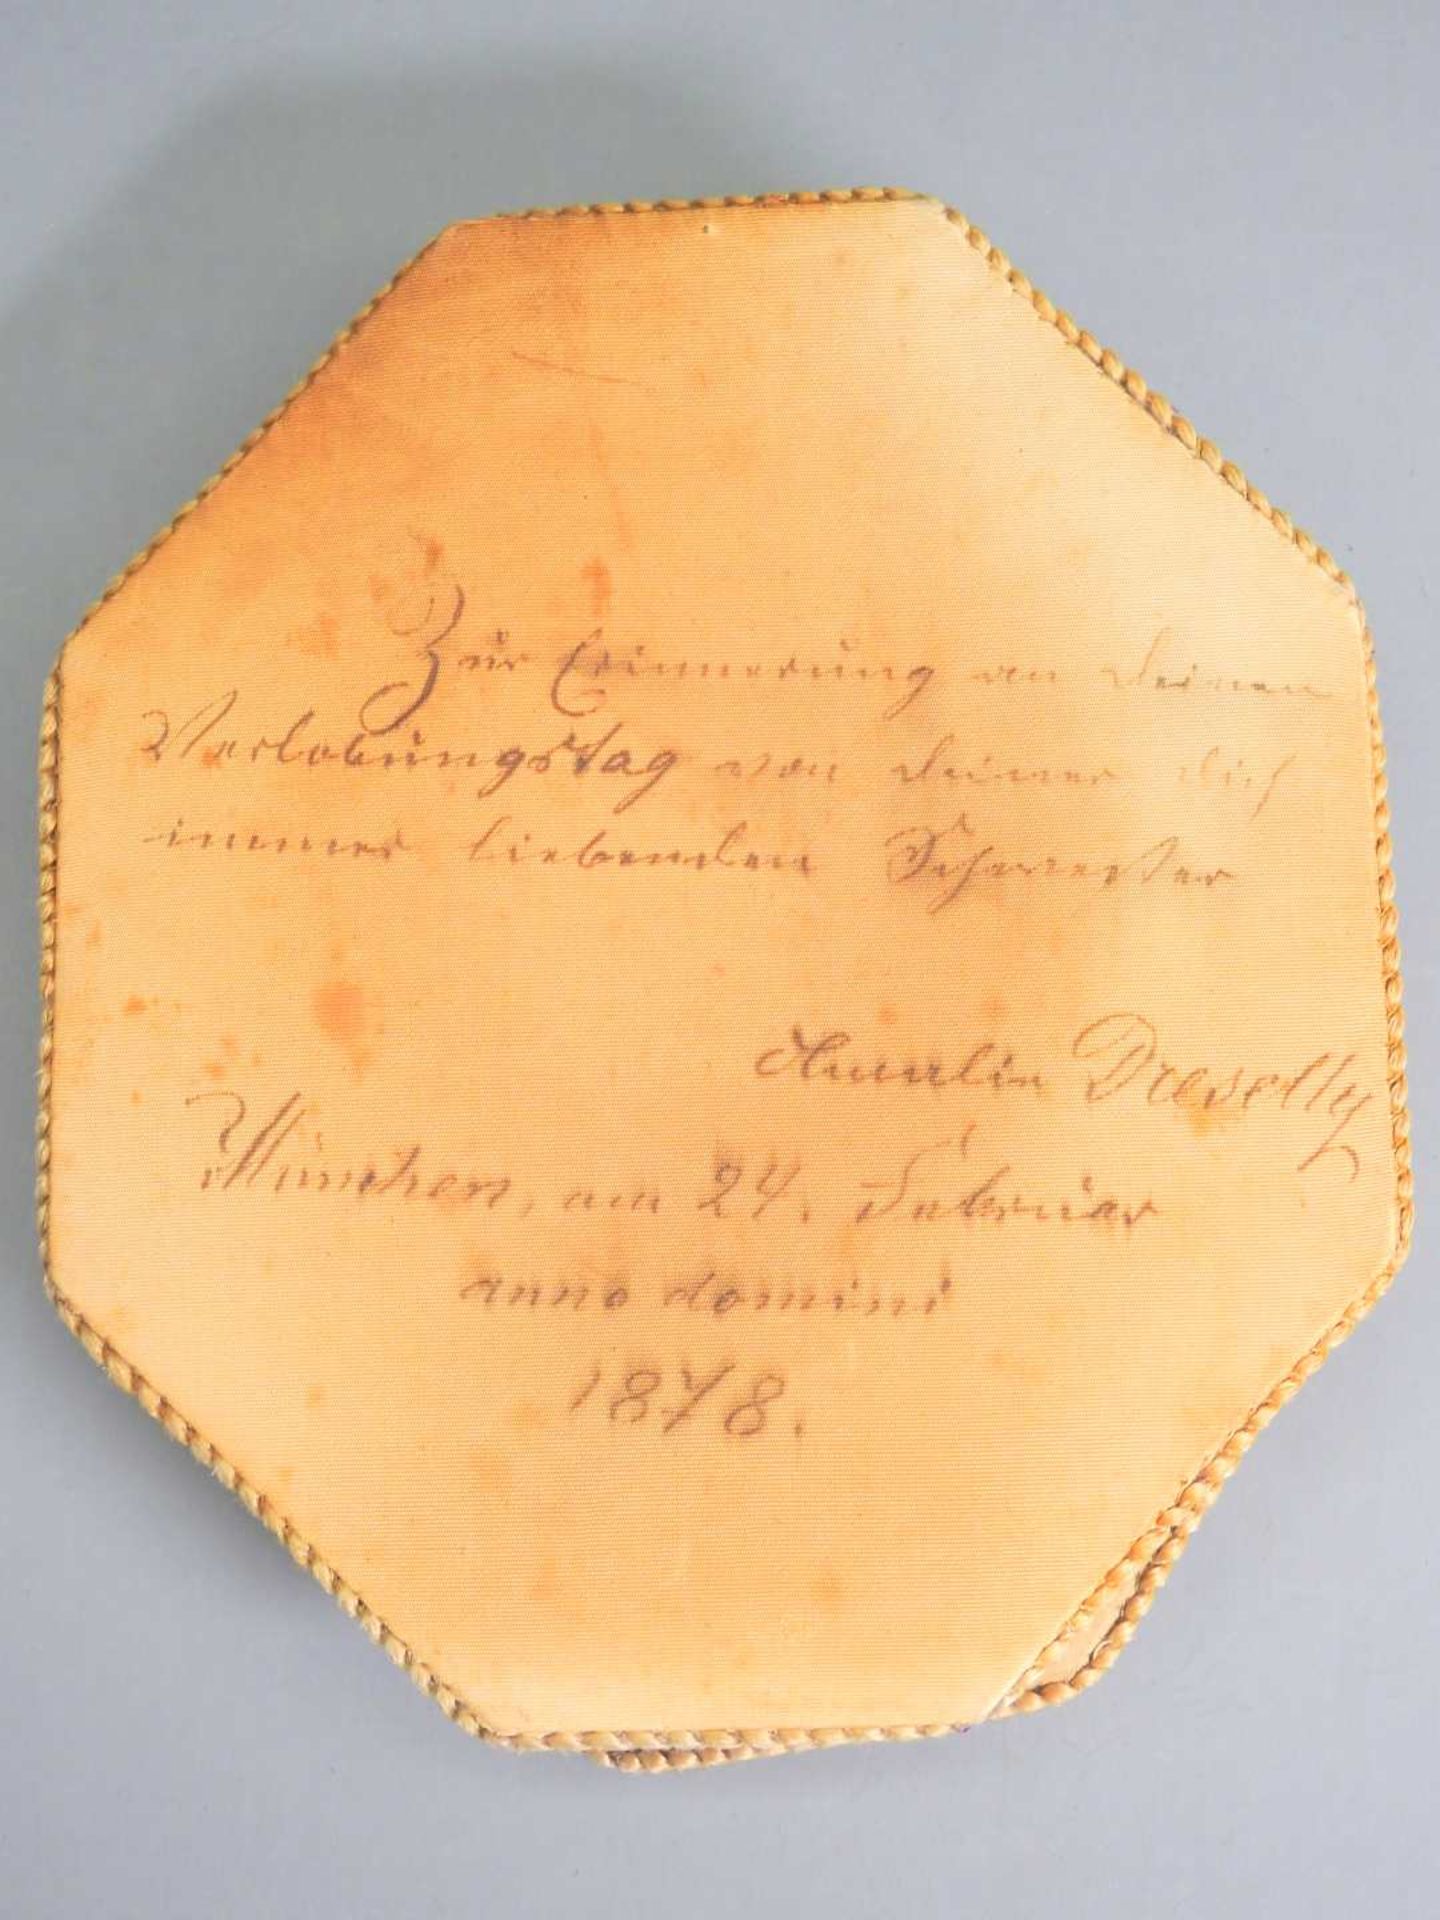 Zur Erinnerung an Deinen
Verlobungstag von Deiner Dich
immer liebenden Schwester
Amalie Dreselly
München, am 24. Februar
anno domini
1878.